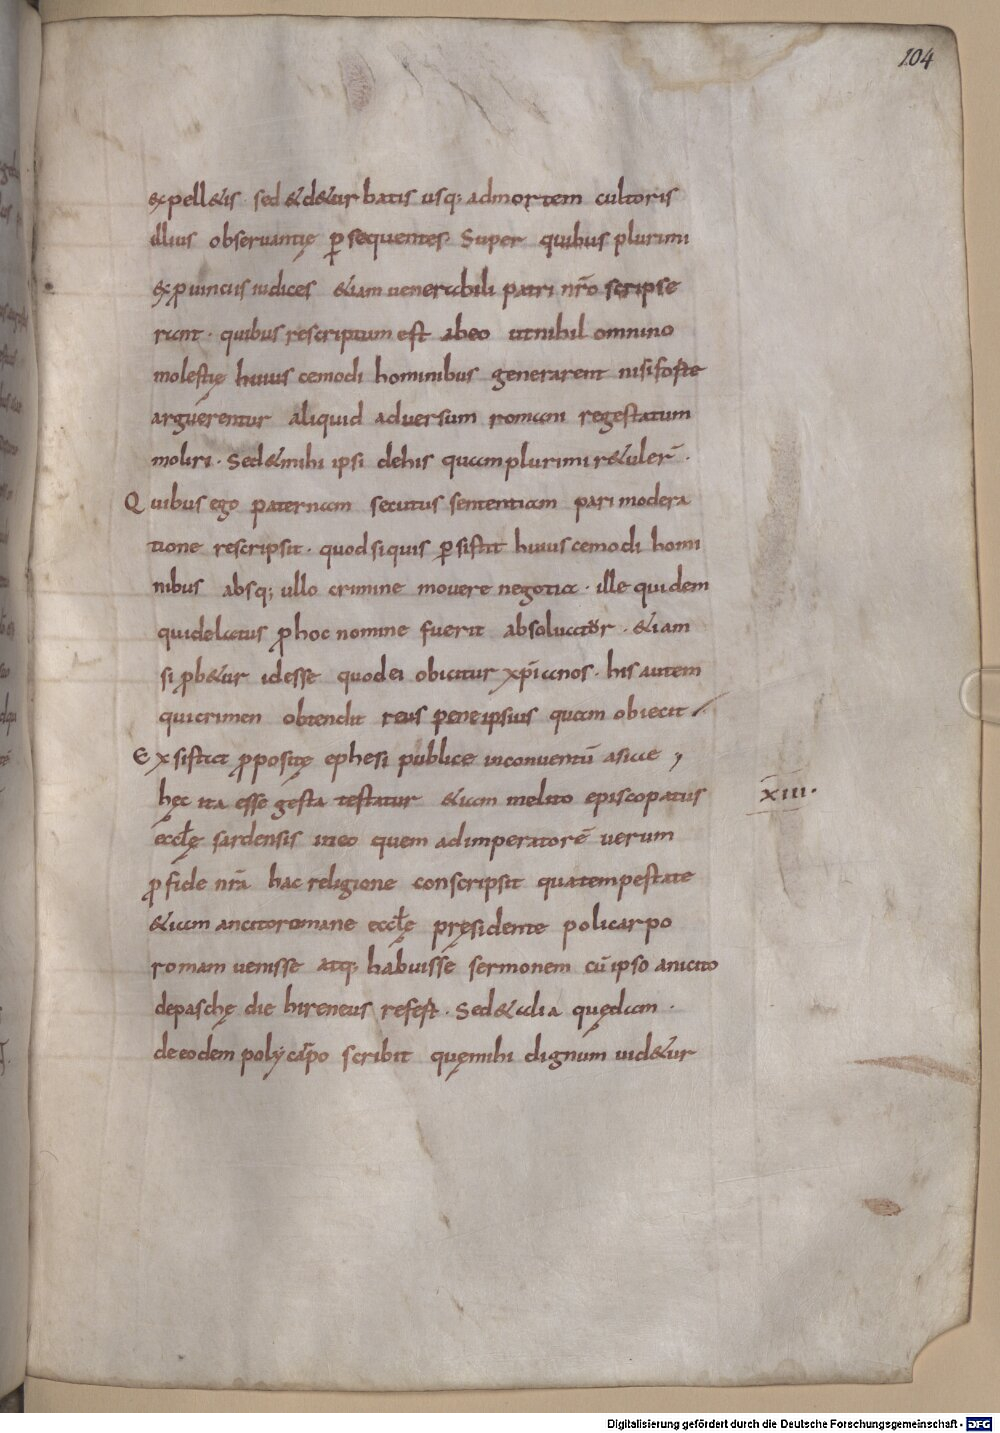 104
expell&is sed &d&urbatis usq; admortem cultoris
illius observantię p̱sequentes. Super quibus plurimi
exp̱uinciis iudices &iam uenerabili patri nr̄o scripse
runt · quibus rescriptum est abeo utnihil omnino
molestię huius cemodi hominibus generarent nisiforte
arguerentur aliquid adversum romani regestatum
moliri · Sed&mihi ipsi dehis quamplurimi r&uler̄ ·
Quibus ego paternam secutus sententiam pari modera
tione rescripsit · quodsiquis p̱sistit huius cemodi homi
nibus absq; ullo crimine movere negotia · ille quidem
quidelatus p̱hoc nomine fuerit absoluator · &iam
si p̱b&ur idesse quodei obicitur xp̄ianos · his autem
quicrimen obtendit reus pene ipsius quam obiecit
Exsistat p̱positę ephesi publice inconventū asiae,
hęc ita esse gesta testatur &iam melito episcopatus
xiii·
eccłę sardensis ineo quem adimperatorē verum
p̱fide nr̄a hac religione conscripsit quatempestate
&iam anicitoromane eccłę pręsidente policarpo
romam uenisse atq; habuisse sermonem cū ipso anicito
depaschę die hireneus refest · Sed&alia quędam ·
deeodem polẏcar̄po scribit quęmihi dignum uid&ur
Digitalisierung gefördert durch die Deutsche Forschungsgemeinschaft - DFG